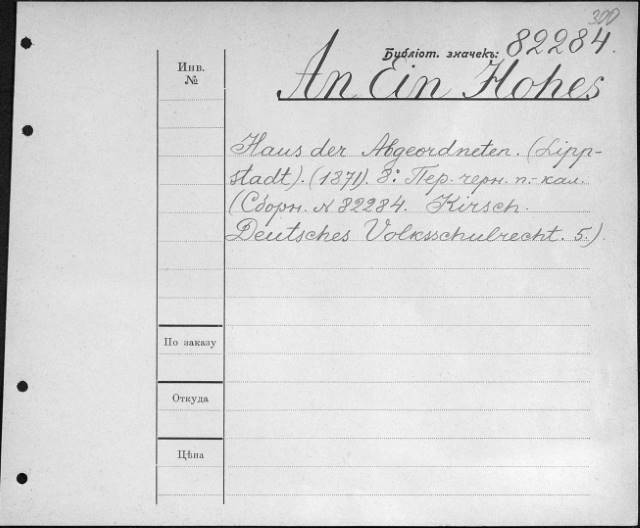 300
Библіот. значекъ: 82284.
An Ein Hohes
Инв.
№
Haus der Abgeordneten. (Lipp-
stadt). (1871). 8: Пер. черн. п.-кал.
(Сборн. № 82284. Kirsch.
Deutsches Volksschulrecht. 5.)
По заказу
Откуда
Цѣна